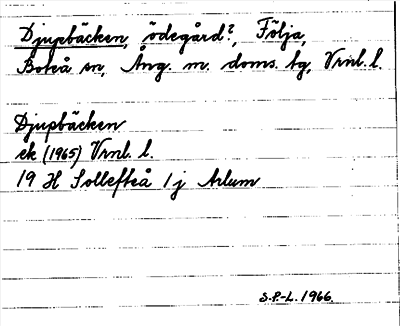 Djupbäcken, ödegård?, Följa,
Boteå sn, Ång. m. doms. tg, Vrnl. l.
Djupbäcken
ek (1965) Vrnl. l.
19 H Sollefteå 1 j Arlum
S.P.-L. 1966.